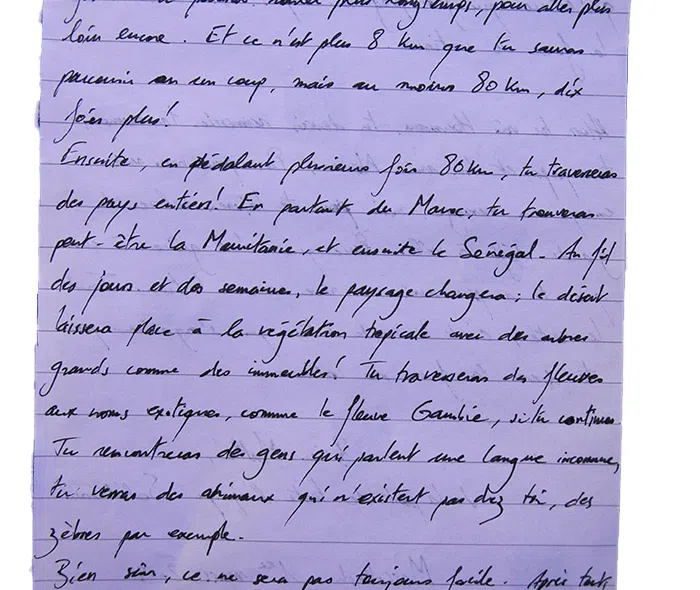 pouvoir rouler plus longtemps, pour aller plus
loin encore. Et ce n'est plus 8 km que tu sauras
parcourir en un coup, mais au moins 80 km, dix
fois plus!
Ensuite, en pédalant plusieurs fois 80 km, tu traverseras
des pays entiers! En partant du Maroc, tu trouveras
peut-être la Mauritanie, et ensuite le Sénégal. Au fil
des jours et des semaines, le paysage changera; le désert
laissera place à la végétation tropicale avec des arbres
grands comme des immeubles! Tu traverseras des fleuves
aux noms exotiques, comme le fleuve Gambie, si tu continues.
Tu rencontreras des gens qui parlent une langue inconnue,
tu verras des animaux qui n'existent pas chez toi, des
zèbres par exemple.
Bien sûr, ce ne sera pas toujours facile. Après tout,